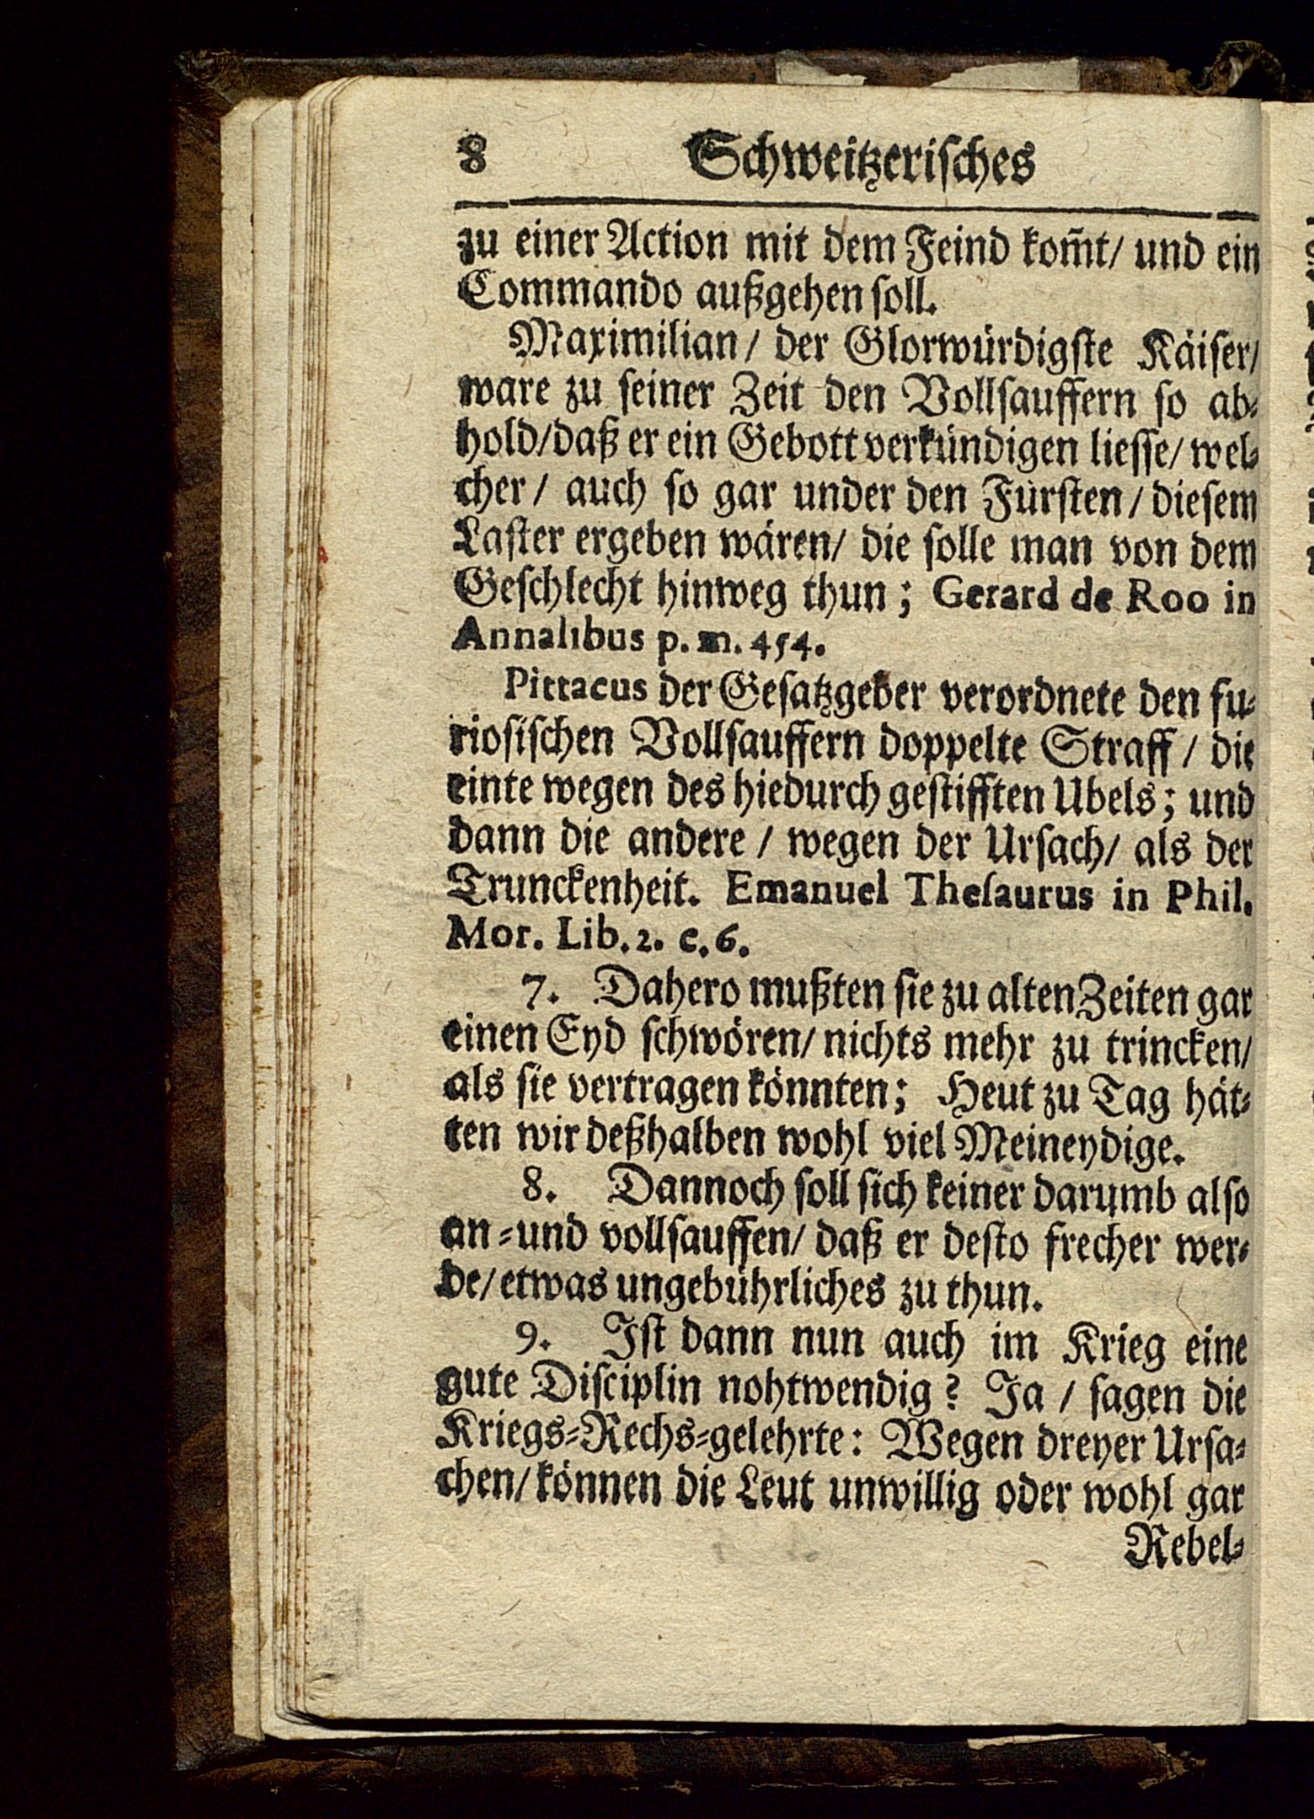 8 Schweitzerisches
zu einer Action mit dem Feind kom̃t/ und ein
Commando außgehen soll.
Maximilian/ der Glorwürdigste Käiser/
ware zu seiner Zeit den Vollsauffern so ab-
hold/daß er ein Gebott verkündigen liesse/ wel-
cher/ auch so gar under den Fürsten/ diesem
Laster ergeben wären/ die solle man von dem
Geschlecht hinweg thun; Gerard de Roo in
Annalibus p. m. 454.
Pittacus der Gesatzgeber verordnete den fu-
riosischen Vollsauffern doppelte Straff/ die
einte wegen des hiedurch gestifften Ubels; und
dann die andere/ wegen der Ursach/ als der
Trunckenheit. Emanuel Thesaurus in Phil.
Mor. Lib. 2. c. 6.
7. Dahero mußten sie zu alten Zeiten gar
einen Eyd schwören/ nichts mehr zu trincken/
als sie vertragen könnten; Heut zu Tag hät-
ten wir deßhalben wohl viel Meineydige.
8. Dannoch soll sich keiner darumb also
an-und vollsauffen/ daß er desto frecher wer-
de/ etwas ungebührliches zu thun.
9. Ist dann nun auch im Krieg eine
gute Disciplin nohtwendig? Ja/ sagen die
Kriegs-Rechs-gelehrte: Wegen dreyer Ursa-
chen/ können die Leut unwillig oder wohl gar
Rebel-